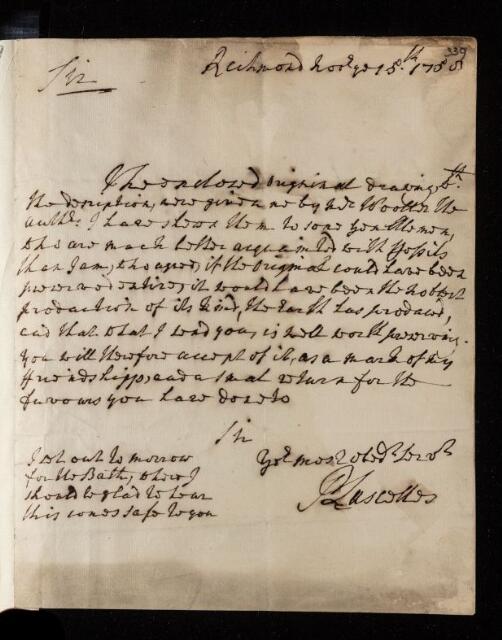 239
Sir
Richmond Novr ye 15th. 1758
The enclosed Original drawing wth.
the description, were given me by Mr Wooller the
Author. I have shewn them to some Gentlemen,
who are much better acquainted with Fossils
than I am, who agree, if the Original could have been
preserved entire, it would have been the noblest
production of its kind, the Earth has produced,
and that what I send you, is well worth preserving.
You will therefore accept of it, as a mark of my
friendshipp, and a small return for the
favours you have done to
Sir
Yor. most obedt. Servt.
I set out to morrow
for the Bath, where I
should be glad to hear
this comes safe to you